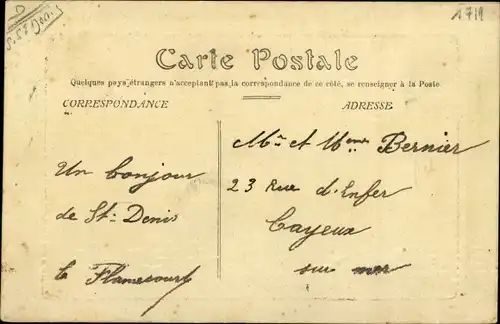 D
1.719
Carte Postale
Quelques pays étrangers n'acceptant pas la correspondance de ce côté, se renseigner à la Poste
CORRESPONDANCE
ADRESSE
Un bonjour
de St. Denis
Flamecourt
Mr et Mme Bernier
23 Rue d'Enfer
Cayeux
sur mer